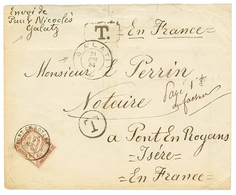 Envoi de
Paur Nicoclès
Galatz
T.
En France
GALATI
Monsieur E Perrin
Notaire
Payé 1f
au facteur
T
à Pont En Royans
Isère
En France